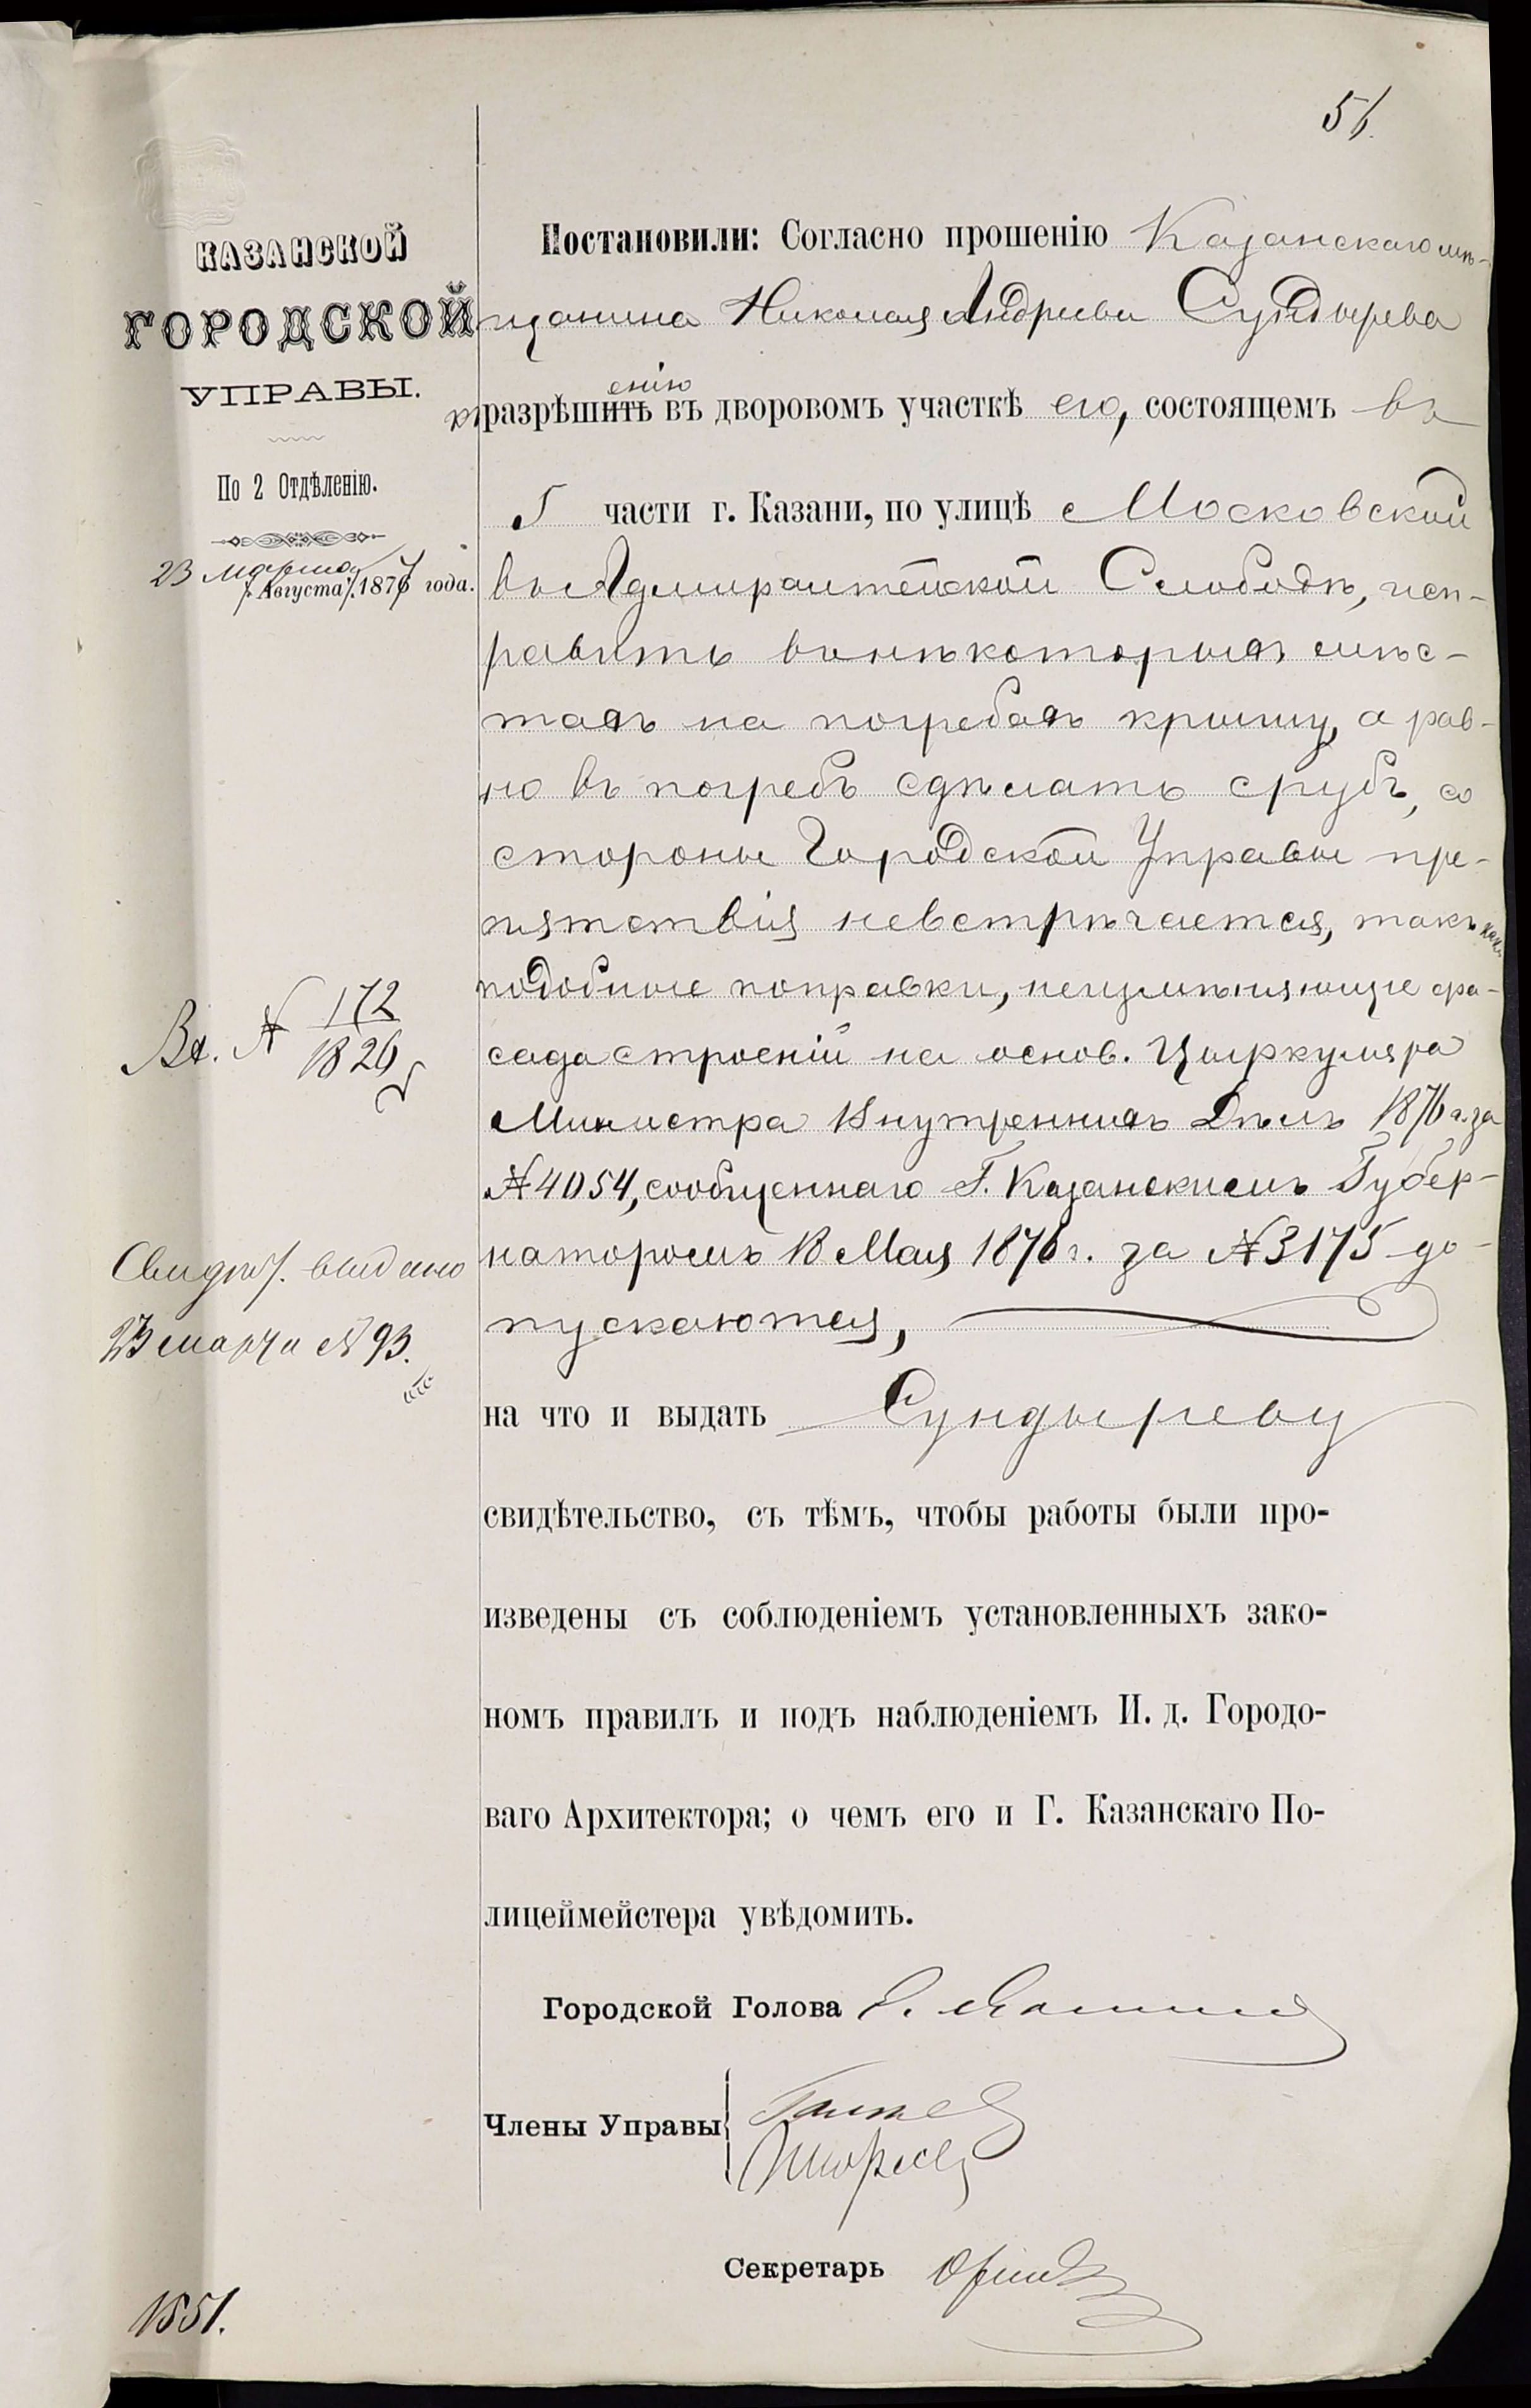 56.
КАЗАНСКОЙ
ГОРОДСКОЙ
УПРАВЫ.
По 2 Отдѣленію.
23 марта
Августа 1877 года.
Вх. № 172
1826
Свидѣт. выдано
23 марта № 93.
1551.
Постановили: Согласно прошенію Казанскаго мѣ-
щанина Николая Андреева Сундырева
къ разрѣшенію въ дворовомъ участкѣ его, состоящемъ въ
5 части г. Казани, по улицѣ Московской
въ Адмиралтейской Слободѣ, исп-
равить въ нѣкоторыхъ мѣс-
тахъ на погребахъ крышу, а рав-
но въ погребъ сдѣлать срубъ, со
стороны Городской Управы пре-
пятствія невстрѣчается, такъ какъ
подобные поправки, неизмѣняющіе фа-
сада строеній на основ. Циркуляра
Министра Внутреннихъ Дѣлъ 1876 г. за
№ 4054, сообщеннаго Г. Казанскимъ Губер-
наторомъ 18 Мая 1876 г. за № 3175 до-
пускаются,
на что и выдать Сундыреву
свидѣтельство, съ тѣмъ, чтобы работы были про-
изведены съ соблюденіемъ установленныхъ зако-
номъ правилъ и подъ наблюденіемъ И. д. Городо-
ваго Архитектора; о чемъ его и Г. Казанскаго По-
лицеймейстера увѣдомить.
Городской Голова
Члены Управы
Секретарь